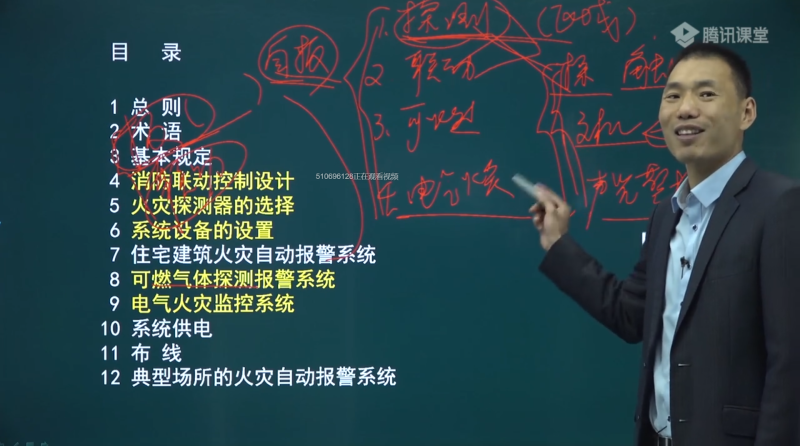 腾讯课堂
目 录
1 总 则
2 术 语
3 基本规定
4 消防联动控制设计
5 火灾探测器的选择
6 系统设备的设置
7 住宅建筑火灾自动报警系统
8 可燃气体探测报警系统
9 电气火灾监控系统
10 系统供电
11 布 线
12 典型场所的火灾自动报警系统
510696128正在观看视频
自报
1. 探测 (区域)
2 联动
4. 电气火灾
探